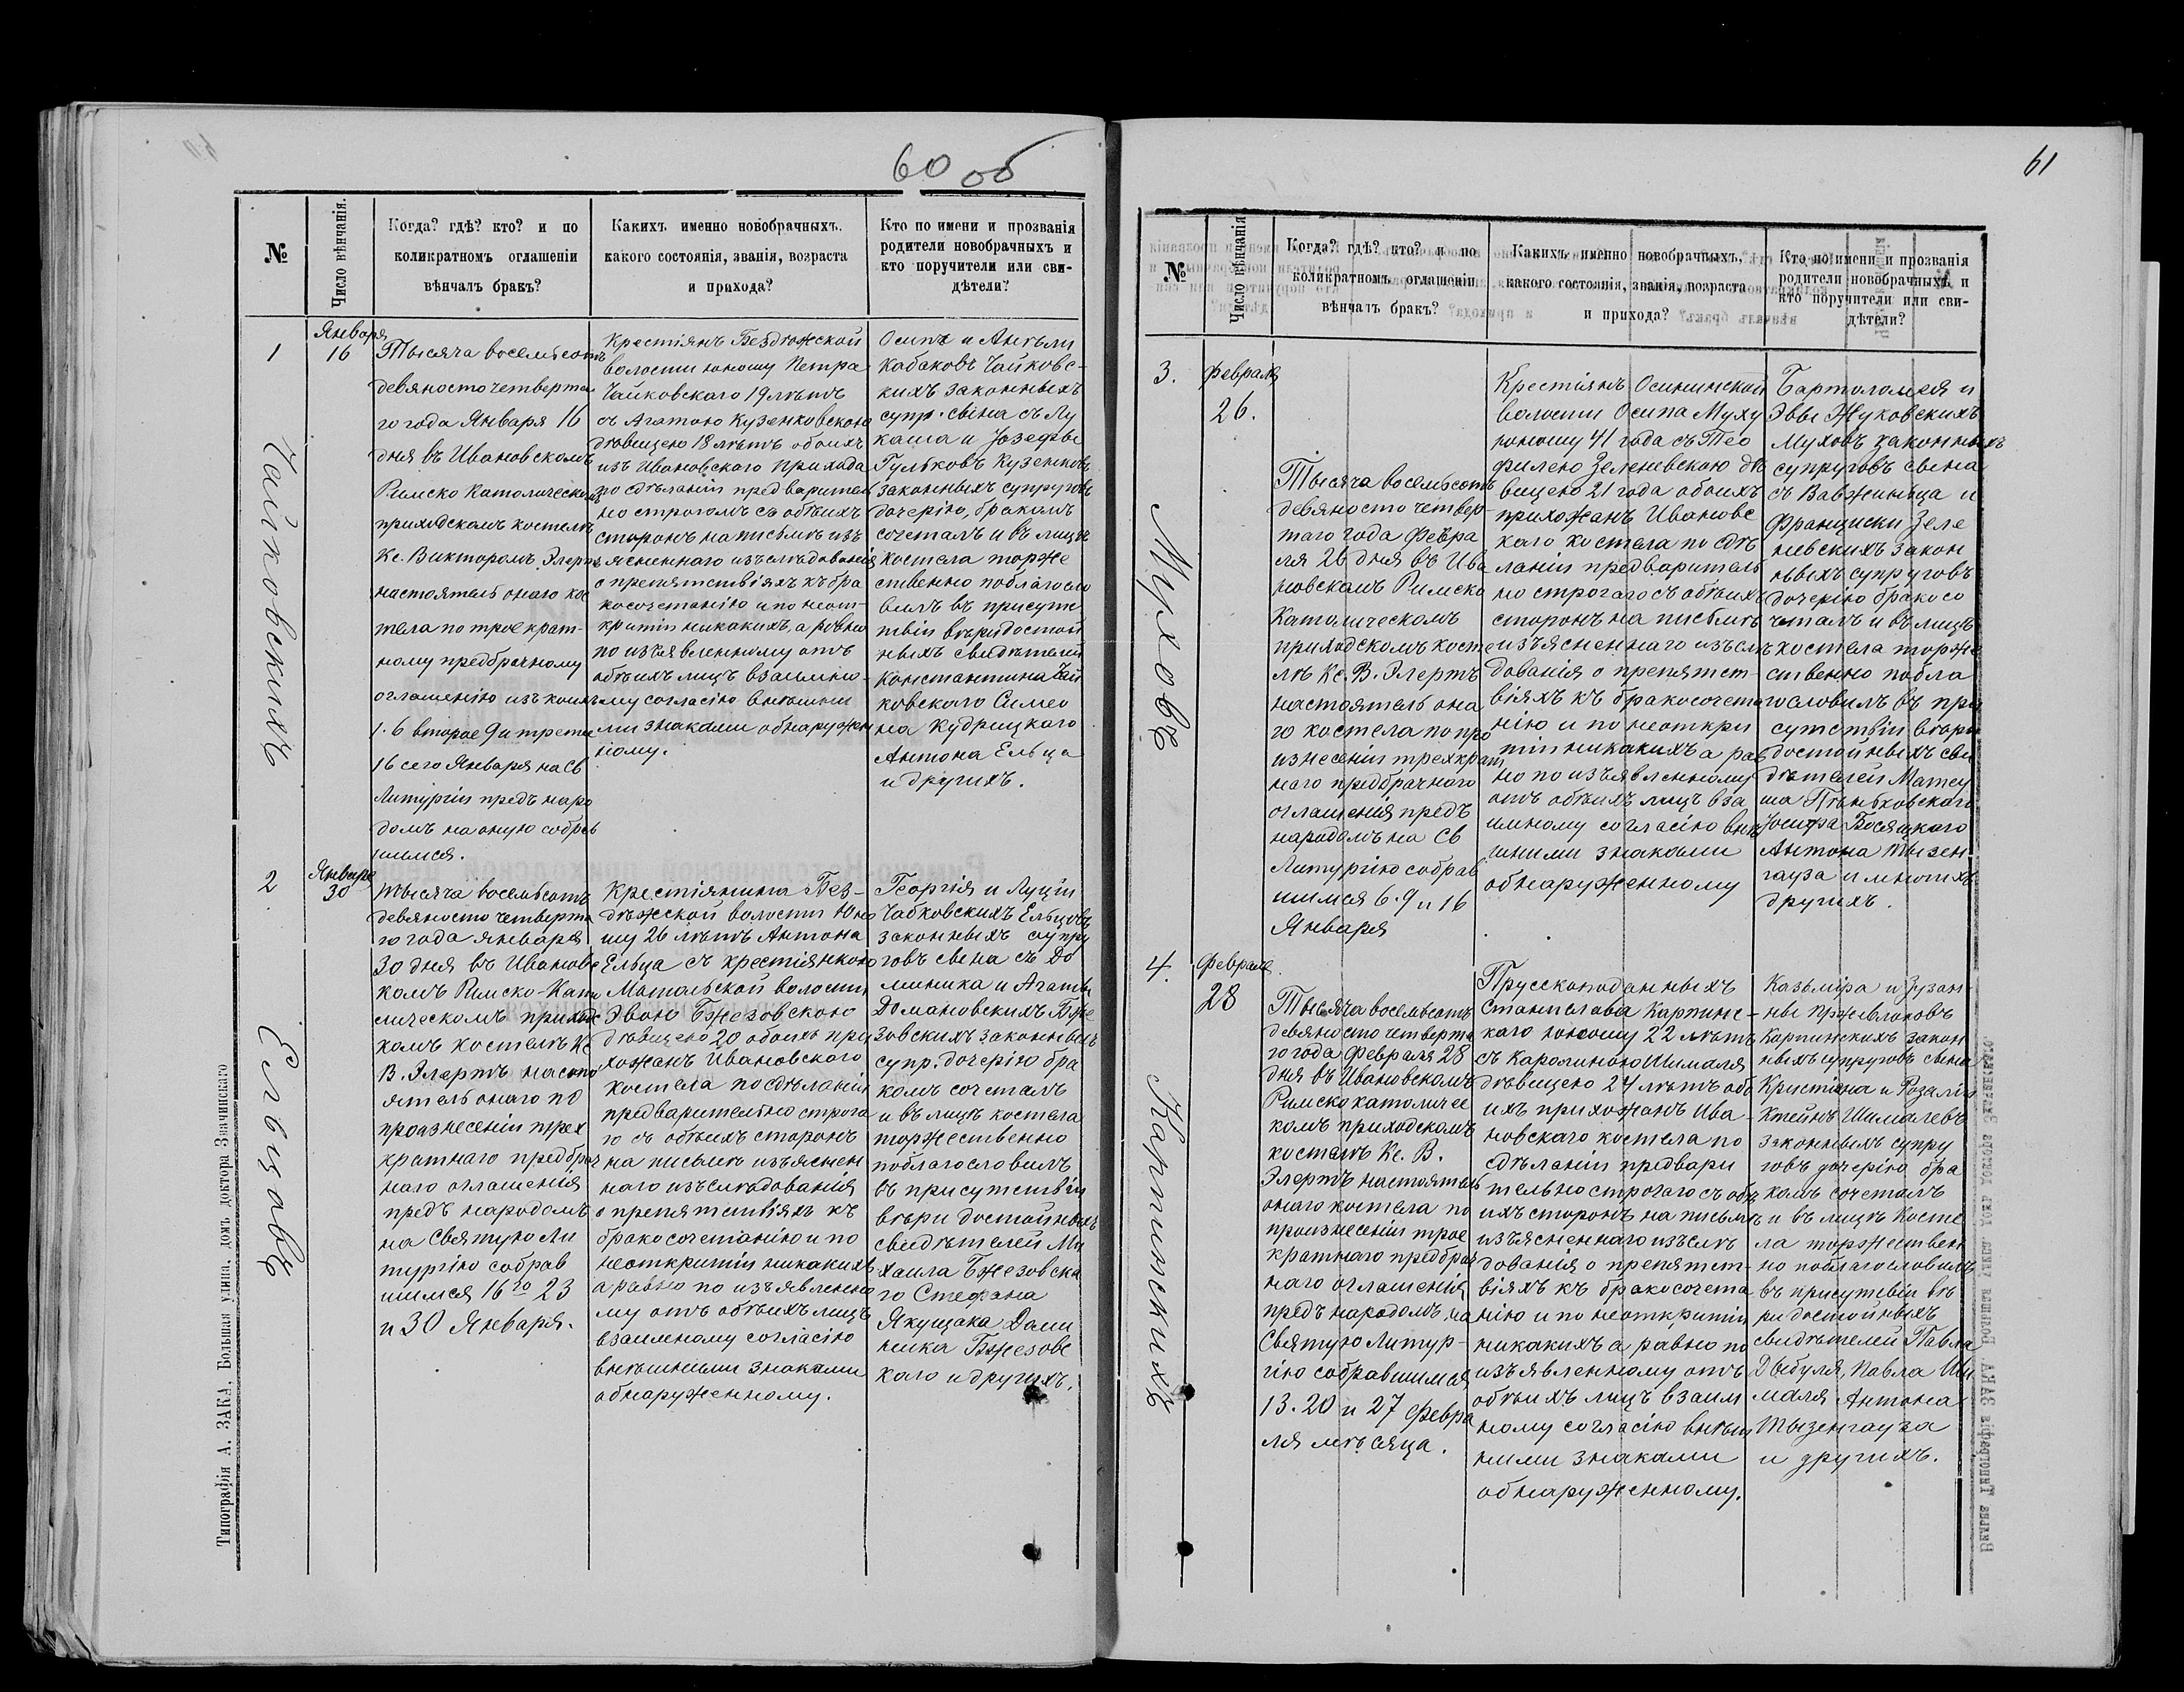 60 об
№
Число вѣнчанія.
Когда? гдѣ? кто? и по
коликратномъ оглашеніи
вѣнчалъ бракъ?
Какихъ именно новобрачныхъ,
какого состоянія, званія, возраста
и прихода?
Кто по имени и прозванія
родители новобрачныхъ и
кто поручители или сви-
дѣтели?
1
Января
16
Чайковскихъ
Тысяча восемьсотъ
девяносто четверта
го года Января 16
дня въ Ивановскомъ
Римско Католическомъ
приходскомъ костелѣ
Кс. Викторомъ Элертъ
настоятель онаго кос
тела по трое крат-
ному предбрачному
оглашенію изъ коихъ
1. 6 второе 9 и третее
16 сего Января на Св
Литургіи предъ наро
домъ на оную собрав
шимся.
Крестіянъ Бездѣжской
волости юношу Петра
Чайковскаго 19 лѣтъ
съ Агатою Кузенковскою
дѣвицею 18 лѣтъ обоихъ
изъ Ивановскаго прихода
по сдѣланіи предварител
но строгомъ съ обѣихъ
сторонъ на письмѣ изъ
ясненнаго изъслѣдованія
о препятствіяхъ къ бра
косочетанію и по неот-
критіи никакихъ, а ровно
по изъявленному отъ
обѣихъ лицъ взаимно-
му согласію внѣшни
ми знаками обнаружен
ному.
Осипа и Ангели
Кабаковъ Чайковс-
кихъ законныхъ
супр. сына съ Лу
каша и Іозефы
Гульковъ Кузенковъ
законныхъ супруговъ
дочерію, бракомъ
сочеталъ и въ лицѣ
костела торже
ственно поблагосло
вилъ въ присутс
твіи вѣридостой
ныхъ свидѣтелей
Константина Чай
ковскаго Симео
на Кудрицкаго
Антона Ельца
и другихъ.
2
Января
30
Ельцовъ
Тысяча восемьсотъ
девяносто четверта
го года Января
30 дня въ Ивановс
комъ Римско-Като
лическомъ приходс
комъ костелѣ Кс
В. Элертъ насто
ятель онаго по
произнесеніи трех
кратнаго предбрач
наго оглашенія
предъ народомъ
на Святую Ли
тургію собрав
шимся 16го 23
и 30 Января.
Крестіянина Без-
дѣжской волости Юно
шу 26 лѣтъ Антона
Ельца съ крестіянкою
Мотольской волости
Эвою Бжезовскою
дѣвицею 20 обоихъ при
хожанъ Ивановскаго
костела по сдѣланіи
предварительно строга
го съ обѣихъ сторонъ
на письмѣ изъяснен
наго изъслѣдованія
о препятствіяхъ къ
бракосочетанію и по
неоткритіи никакихъ
а равно по изъявленно
му отъ обѣихъ лицъ
взаимному согласію
внѣшними знаками
обнаруженному.
Георгія и Луціи
Чабковскихъ Ельцовъ
законныхъ супру
говъ сына съ До
миника и Агаты
Домановскихъ Бже
зовскихъ законныхъ
супр. дочерію бра
комъ сочеталъ
и въ лицѣ костела
торжественно
поблагословилъ
въ присутствіи
вѣри достойныхъ
свидѣтелей Ми
хаила Бжезовска
го Стефана
Якущака Доми
ника Бжезовс
каго и другихъ.
Типографія А. ЗАКА, Большая улица, домъ доктора Значинскаго
61
№
Число вѣнчанія
Когда? гдѣ? кто? и по
коликратномъ оглашеніи
вѣнчалъ бракъ?
Какихъ именно новобрачныхъ,
какого состоянія, званія, возраста
и прихода?
Кто по имени и прозванія
родители новобрачныхъ и
кто поручители или сви-
дѣтели?
3.
Февраля
26.
Муховъ
Тысяча восемьсотъ
девяносто четвер-
таго года Февра
ля 26 дня въ Ива
новскомъ Римско
Католическомъ
приходскомъ косте
лѣ Кс. В. Элертъ
настоятель она
го костела по про
изнесеніи трехкрат
наго предбрачнаго
оглашенія предъ
народомъ на Св
Литургію собрав
шимся 6. 9 и 16
Января
Крестіянъ Осининской
волости Осипа Муху
юношу 41 года съ Тео
филею Зеленевскою дѣ
вицею 21 года обоихъ
прихожанъ Ивановс
каго костела по сдѣ
ланіи предваритель
но строгаго съ обѣихъ
сторонъ на письмѣ
изъясненнаго изъслѣ
дованія о препятст-
віяхъ къ бракосочета
нію и по неоткри
тіи никакихъ а рав
но по изъявленному
отъ обѣихъ лицъ вза
имному согласію внѣ
шними знаками
обнаруженному
Бартоломея и
Эвы Жуковскихъ
Муховъ законныхъ
супруговъ сына
съ Вавжиньца и
Франциски Зеле
невскихъ закон
ныхъ супруговъ
дочерію бракосо
четалъ и въ лицѣ
костела торже
ственно побла
гословилъ въ при
сутствіи вѣри
достойныхъ сви
дѣтелей Матеу
ша Пѣньковскаго
Іосифа Босяцкаго
Антона Тызен-
гауза и многихъ
другихъ.
4.
Февраля
28
Карпинскихъ
Тысяча восемьсотъ
девяносто четверта
го года Февраля 28
дня въ Ивановскомъ
Римско католичес
комъ приходскомъ
костелѣ Кс. В.
Элертъ настоятель
онаго костела по
произнесеніи трое
кратнаго предбрач
наго оглашенія
предъ народомъ, на
Святую Литур-
гію собравшимся
13. 20 и 27 Февра
ля мѣсяца.
Прусскоподанныхъ
Станислава Карпинс-
каго юношу 22 лѣтъ
съ Каролиною Шималя
дѣвицею 24 лѣтъ обо
ихъ прихожанъ Ива-
новскаго костела по
сдѣланіи предвари
тельно строгаго съ обѣ
ихъ сторонъ на письмѣ
изъясненнаго изъслѣ
дованія о препятст-
віяхъ къ бракосочета
нію и по неоткритіи
никакихъ а равно по
изъявленному отъ
обѣихъ лицъ взаим
ному согласію внѣш
ними знаками
обнаруженному.
Казьміра и Зузан-
ны Пржевлоковъ
Карпинскихъ закон
ныхъ супруговъ сына
Кристіана и Розаліи
Клейнъ Шималевъ
законныхъ супру
говъ дочерію бра
комъ сочеталъ
и въ лицѣ Косте
ла торжествен
но поблагословилъ
въ присутвіи вѣ
ри достойныхъ
свидѣтелей Павла
Дыбуля, Павла Ши
маля Антона
Тызенгауза
и другихъ.